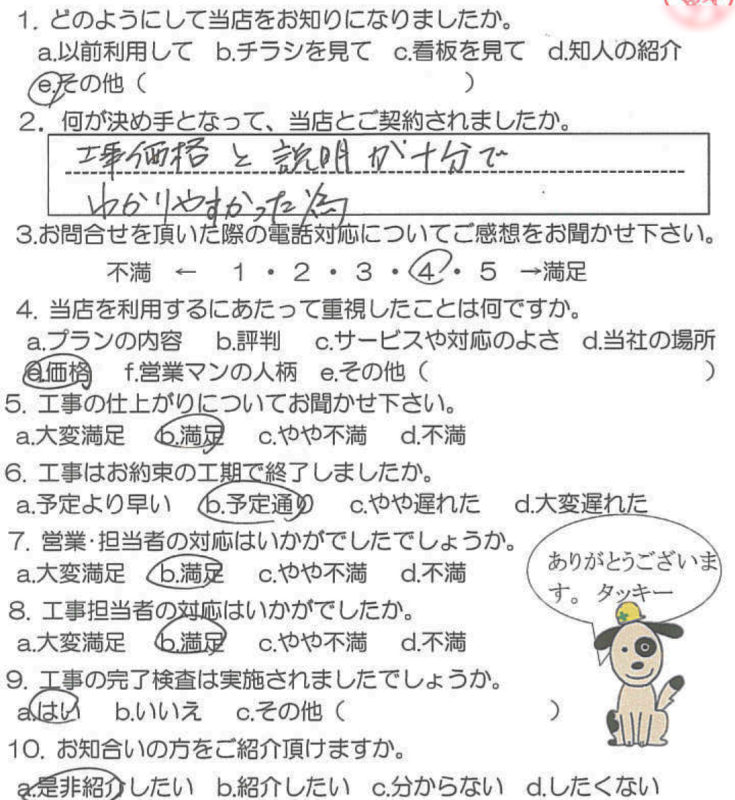 1. どのようにして当店をお知りになりましたか。
a.以前利用して b.チラシを見て c.看板を見て d.知人の紹介
e.その他（ ）
2. 何が決め手となって、当店とご契約されましたか。
工事価格と説明が十分で
わかりやすかった為
3.お問合せを頂いた際の電話対応についてご感想をお聞かせ下さい。
不満 ← 1・2・3・4・5 →満足
4. 当店を利用するにあたって重視したことは何ですか。
a.プランの内容 b.評判 c.サービスや対応のよさ d.当社の場所
e.価格 f.営業マンの人柄 e.その他（ ）
5. 工事の仕上がりについてお聞かせ下さい。
a.大変満足 b.満足 c.やや不満 d.不満
6. 工事はお約束の工期で終了しましたか。
a.予定より早い b.予定通り c.やや遅れた d.大変遅れた
7. 営業・担当者の対応はいかがでしたでしょうか。
a.大変満足 b.満足 c.やや不満 d.不満
8. 工事担当者の対応はいかがでしたか。
a.大変満足 b.満足 c.やや不満 d.不満
9. 工事の完了検査は実施されましたでしょうか。
a.はい b.いいえ c.その他（ ）
10. お知合いの方をご紹介頂けますか。
a.是非紹介したい b.紹介したい c.分からない d.したくない
ありがとうございま
す。 タッキー